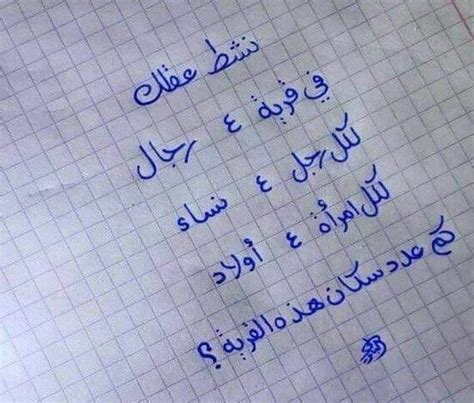 نشط عقلك
في قرية ٤ رجال
لكل رجل ٤ نساء
لكل امرأة ٤ أولاد
كم عدد سكان هذه القرية ؟